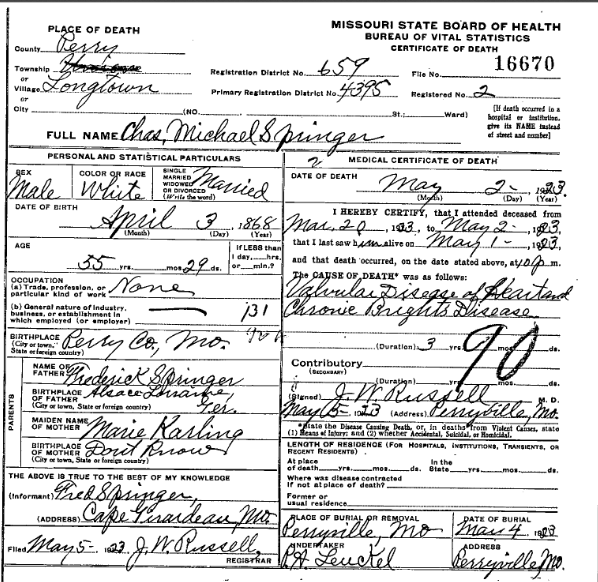 MISSOURI STATE BOARD OF HEALTH
BUREAU OF VITAL STATISTICS
CERTIFICATE OF DEATH
PLACE OF DEATH
County Perry
Township
or
Village Longtown
or
City (NO. St.; Ward)
Registration District No. 659
File No. 16670
Primary Registration District No. 4395
Registered No. 2
[If death occurred in a
hospital or institution,
give its NAME instead
of street and number]
FULL NAME Chas, Michael Springer
PERSONAL AND STATISTICAL PARTICULARS
SEX
Male
COLOR OR RACE
White
SINGLE
MARRIED
WIDOWED
OR DIVORCED
(Write the word)
Married
DATE OF BIRTH
April 3, 1868
(Month) (Day) (Year)
AGE
55 yrs. mos. 29 ds.
If LESS than
1 day, hrs.
or min.?
OCCUPATION
(a) Trade, profession, or
particular kind of work None
(b) General nature of industry,
business, or establishment in
which employed (or employer)
131
BIRTHPLACE
(City or town,
State or foreign country)
Perry Co, Mo.
PARENTS
NAME OF
FATHER Frederick Springer
BIRTHPLACE
OF FATHER
(City or town, State or foreign country)
Alsace Lorraine,
Ger.
MAIDEN NAME
OF MOTHER Marie Karling
BIRTHPLACE
OF MOTHER
(City or town, State or foreign country)
Dont Know
THE ABOVE IS TRUE TO THE BEST OF MY KNOWLEDGE
(Informant) Fred Springer,
(ADDRESS) Cape Girardeau, Mo.
Filed May 5- 1923 J. W. Russell,
REGISTRAR
2 MEDICAL CERTIFICATE OF DEATH
DATE OF DEATH
May 2- 1923.
(Month) (Day) (Year)
I HEREBY CERTIFY, that I attended deceased from
Mar. 20, 1923, to May 2- 1923
that I last saw him alive on May 1- 1923,
and that death occurred, on the date stated above, at m.
The CAUSE OF DEATH* was as follows:
Valvular Disease of Heart and
Chronic Brights Disease
90
(Duration) 3 yrs. mos. ds.
Contributory
(SECONDARY)
(Duration) yrs. mos. ds.
(Signed) J. W. Russell M. D.
May 5- 1923 (Address) Perryville, Mo.
*State the Disease Causing Death, or, in deaths from Violent Causes, state
(1) Means of Injury; and (2) whether Accidental, Suicidal, or Homicidal.
LENGTH OF RESIDENCE (For Hospitals, Institutions, Transients, or
Recent Residents)
At place
of death yrs. mos. ds.
In the
State yrs. mos. ds.
Where was disease contracted
if not at place of death?
Former or
usual residence
PLACE OF BURIAL OR REMOVAL
Perryville, Mo
DATE OF BURIAL
May 4 1923
UNDERTAKER
Leuckel
ADDRESS
Perryville, Mo.